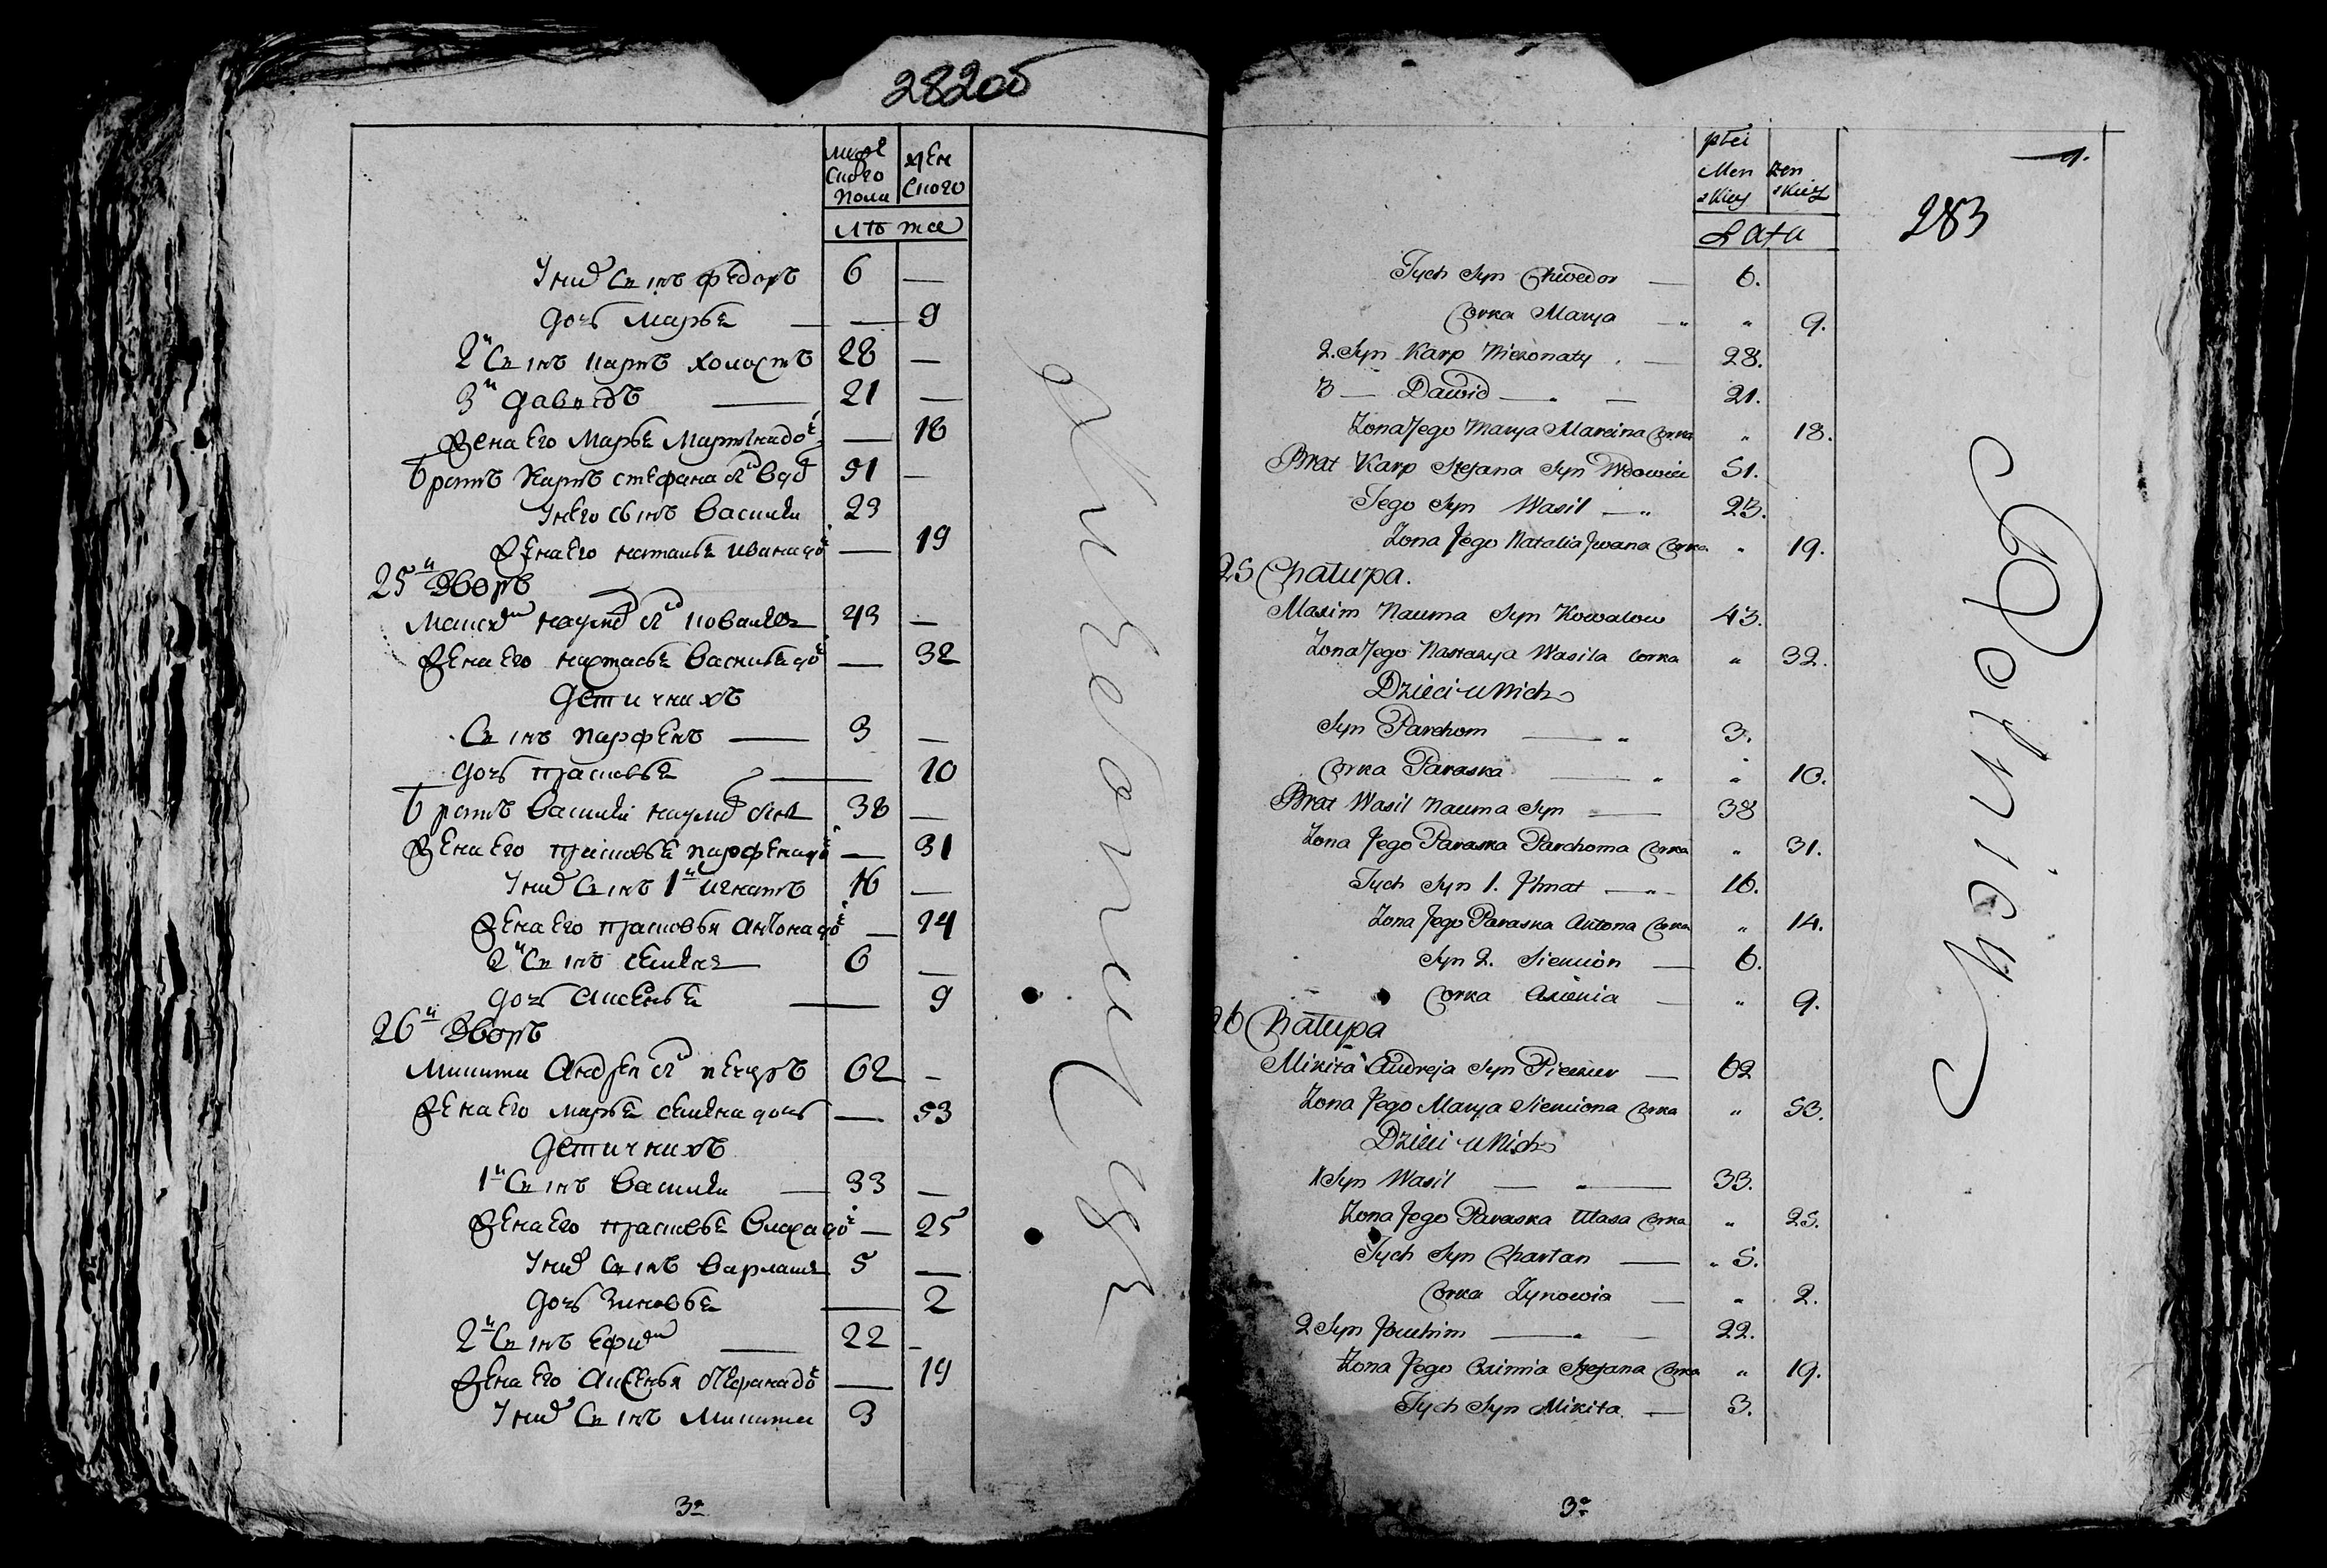 282об
мужеского пола
женского
лѣта
У них сынъ Федоръ 6 —
дочь Марья — — 9
2й сынъ Карпъ холостъ 28 —
3й Давидъ — 21 —
Жена его Марья Мартина до: — 18
Братъ Карпъ Стефана сн вдо 51 —
У него сынъ Василий 23
Жена его Наталья Ивана до: — 19
25й Дворъ
Максим Наума сн Ковалев 43 —
Жена его Настасья Василья до: — 32
Дети у нихъ
Сынъ Парфенъ — 3 —
дочь Прасковья — 10
Братъ Василий Наума сын 38 —
Жена его Прасковья Парфена до: — 31
У них сынъ 1й Игнатъ 16 —
Жена его Прасковья Антона до: — 14
2й сынъ Семен 6 —
дочь Аксенья — 9
26й Дворъ
Микита Андрея сн 62 —
Жена его Марья Семена дочь — 53
Дети у нихъ
1й сынъ Василий — 33 —
Жена его Прасковья Власа до: — 25
У них сынъ Варлам 5 —
дочь Зиновья — 2
2й сынъ Ефим — 22 —
Жена его Аксенья Стефана до: — 19
У них сынъ Микита 3
3а
283
płci
Men skiey
żen skiey
Lata
Tych Syn Chwedor — 6.
Corka Marya — „ „ 9.
2. Syn Karp Niezonaty . — 28.
3 — Dawid — „ — 21.
Zona Jego Marya Marcina Corka „ 18.
Brat Karp Stefana Syn Wdowiec 51.
Jego Syn Wasil — „ 23.
Zona Jego Natalia Jwana Corka „ 19.
25 Chatupa.
Maxim Nauma Syn Kowalow 43.
Zona Jego Nastazya Wasila Corka „ 32.
Dzieci u Nich
Syn Parchom — „ 3.
Corka Paraska — „ „ 10.
Brat Wasil Nauma Syn — 38
Zona Jego Paraska Parchoma Corka „ 31.
Tych Syn 1. Jhnat — „ — 16.
Zona Jego Paraska Antona Corka „ 14.
Syn 2. Siemion — 6.
Corka Axienia — „ 9.
26 Chatupa
Mikita Andreja Syn — 62
Zona Jego Marya Siemiona Corka „ 53.
Dzieci u Nich
1 Syn Wasil — „ — 33.
Zona Jego Paraska Ułasa Corka „ 25.
Tych Syn — „ 5.
Corka Zynowia — „ 2.
2 Syn Jouchim — „ — 22.
Zona Jego Axinia Stefana Corka „ 19.
Tych Syn Mikita — 3.
3а